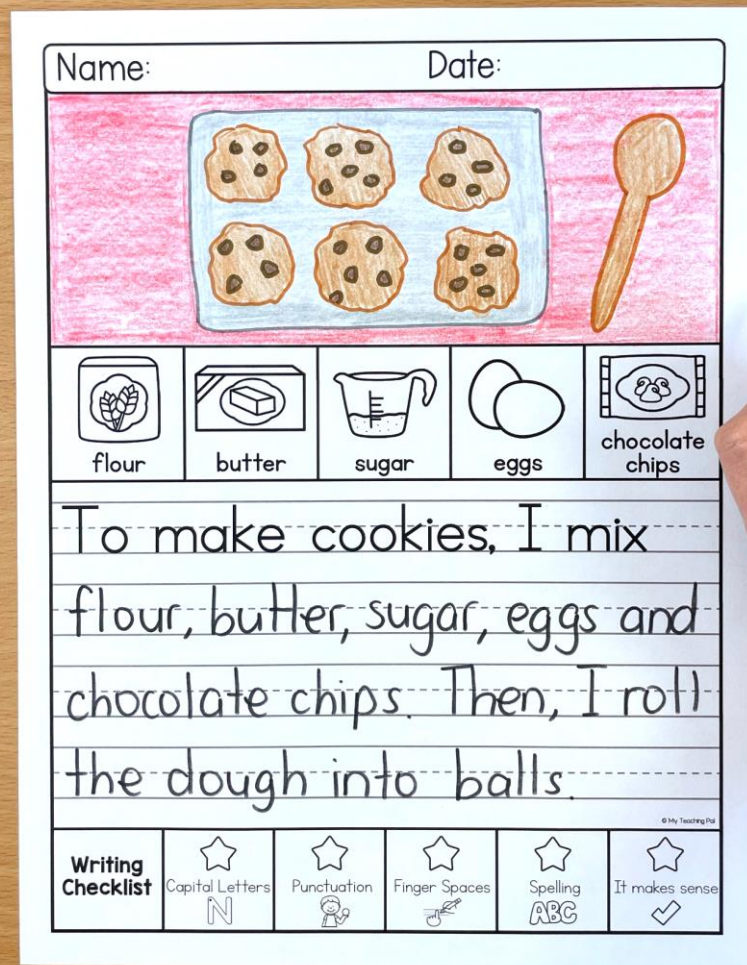 Name: Date:
flour butter sugar eggs chocolate chips
To make cookies, I mix
flour, butter, sugar, eggs and
chocolate chips. Then, I roll
the dough into balls.
© My Teaching Pal
Writing Checklist
Capital Letters Punctuation Finger Spaces Spelling It makes sense
N ABC